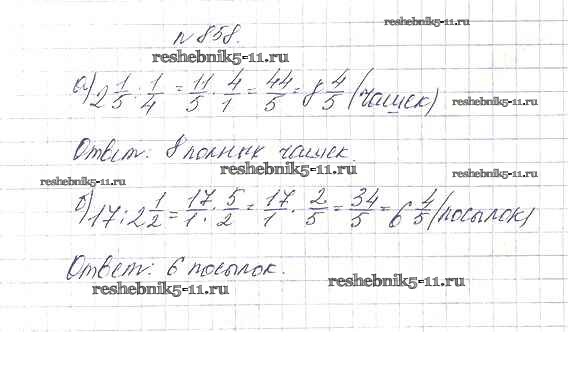 reshebnik5-11.ru
№ 858.
reshebnik5-11.ru
а) 2 1/5 : 1/4 = 11/5 · 4/1 = 44/5 = 8 4/5 (чашек)
reshebnik5-11.ru
Ответ: 8 полных чашек.
reshebnik5-11.ru
reshebnik5-11.ru
б) 17 : 2 1/2 = 17/1 : 5/2 = 17/1 · 2/5 = 34/5 = 6 4/5 (посылок)
reshebnik5-11.ru
Ответ: 6 посылок.
reshebnik5-11.ru
reshebnik5-11.ru